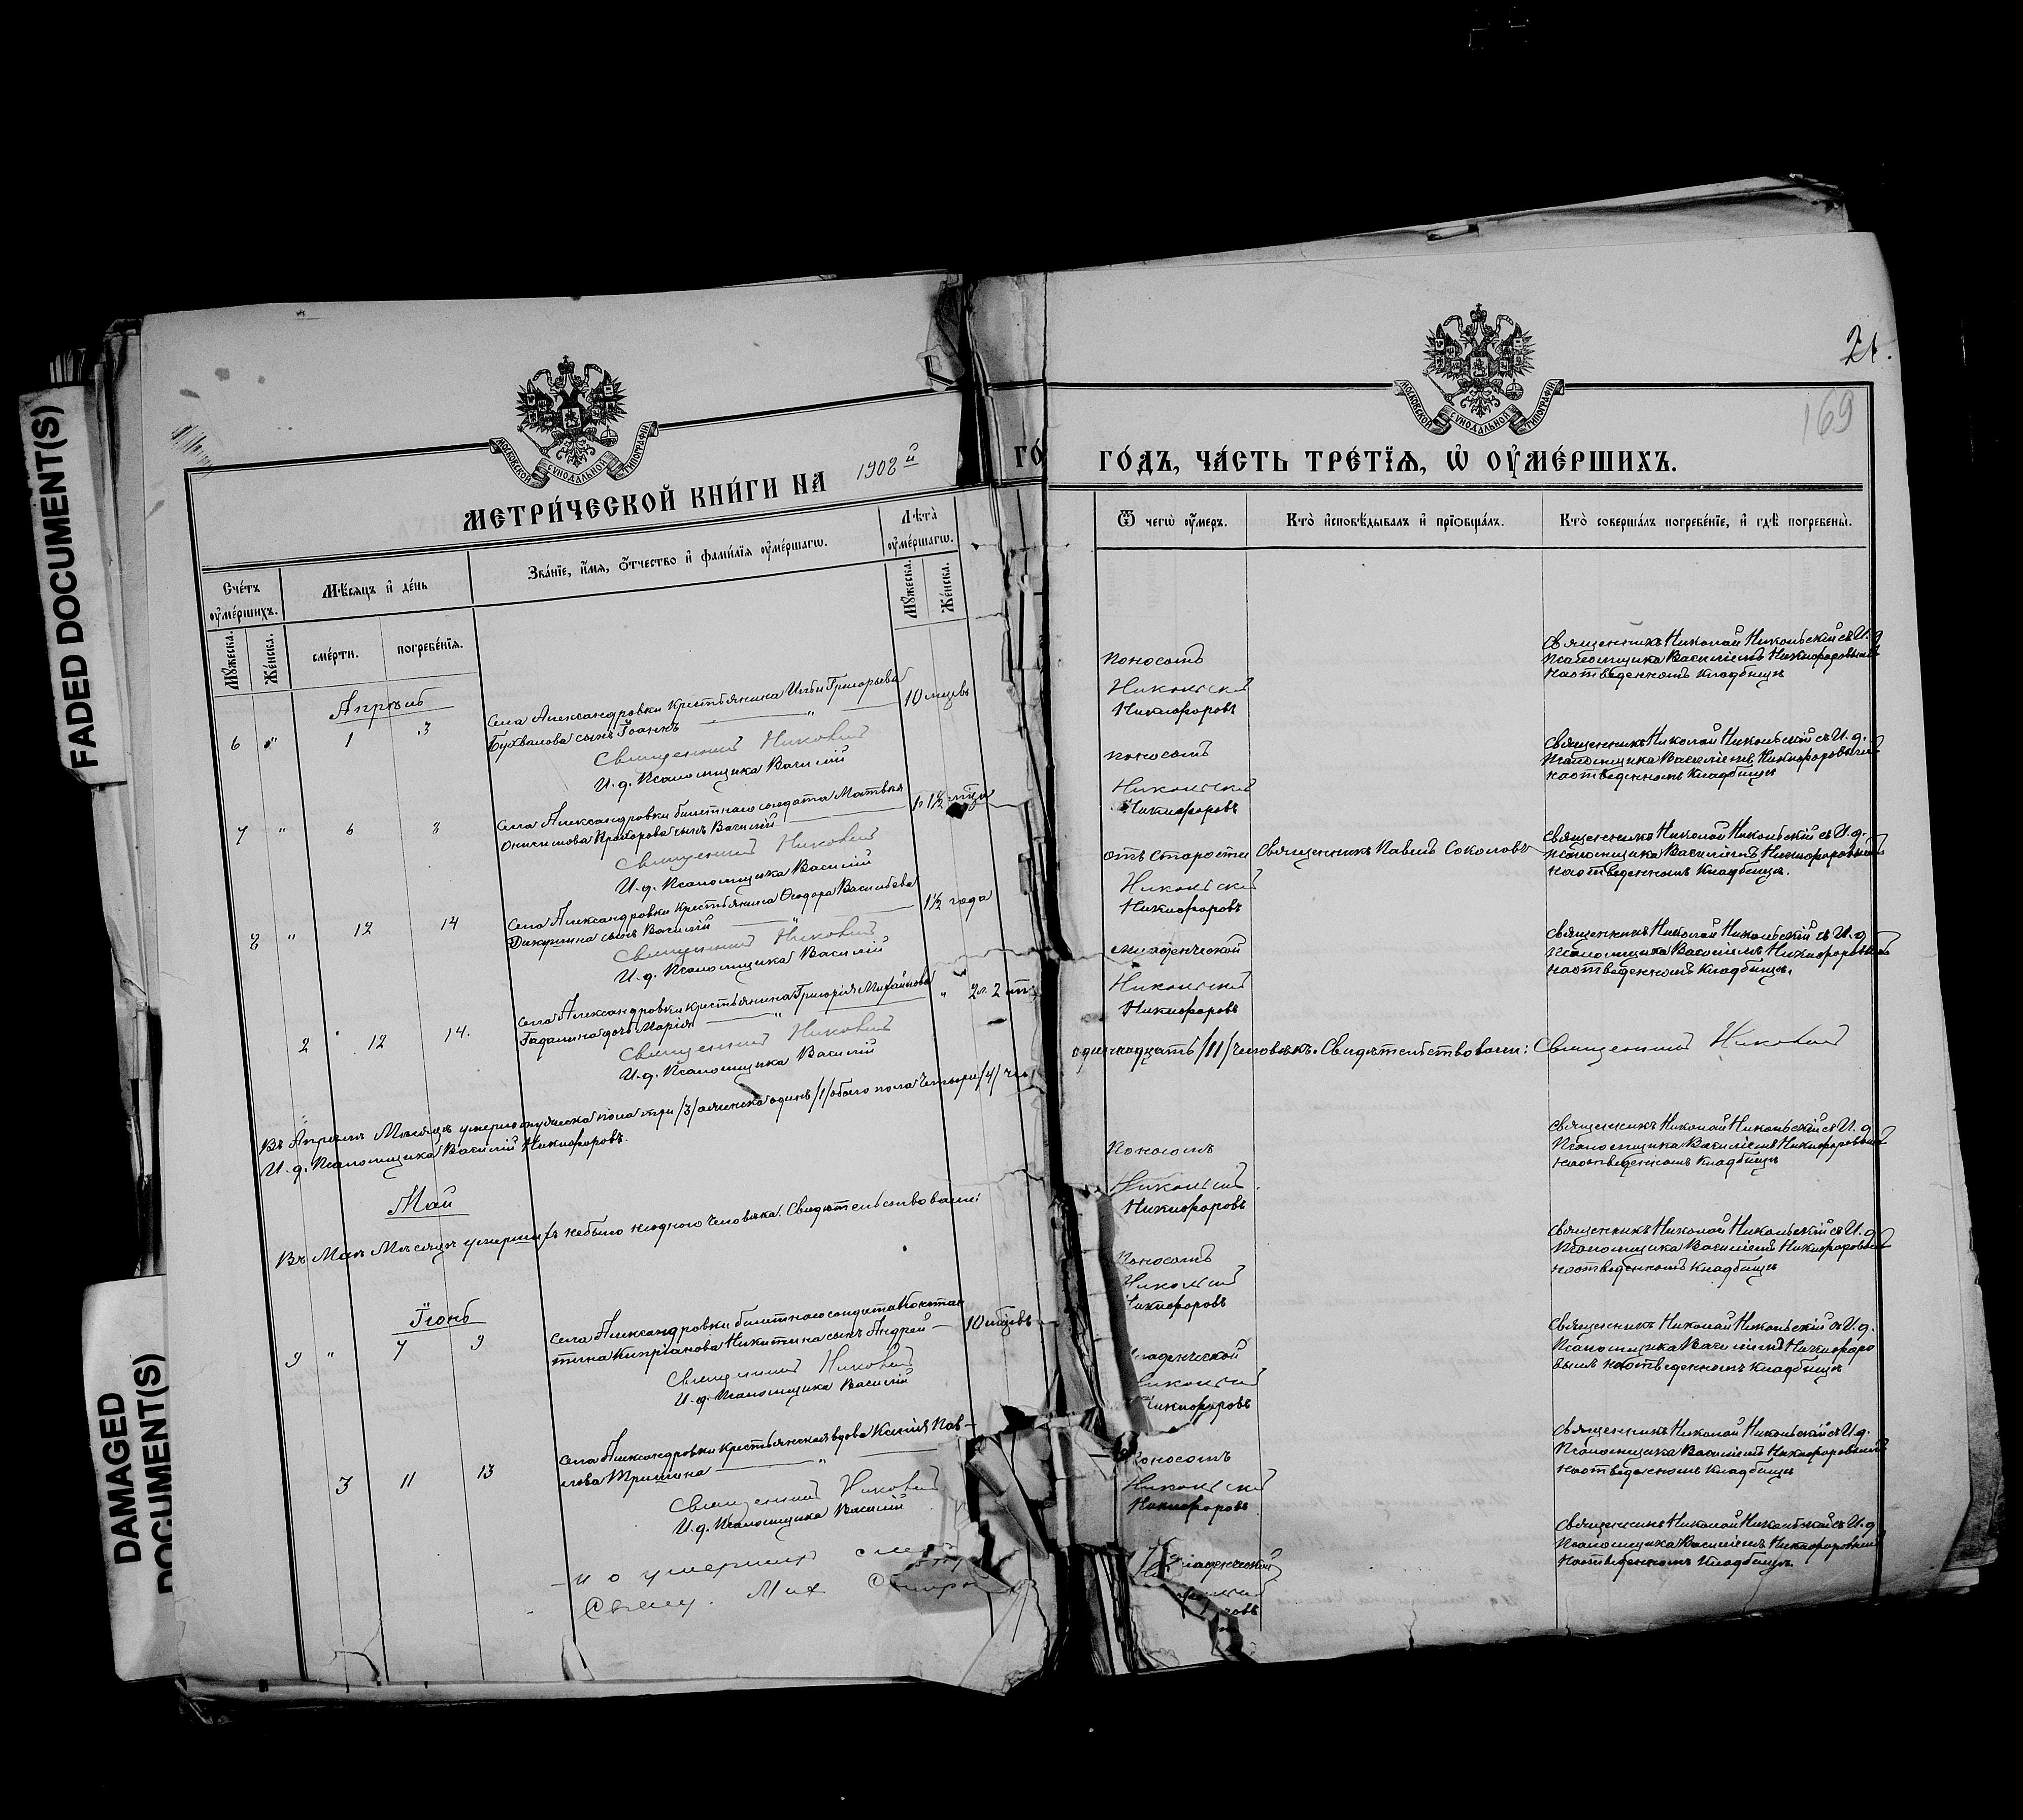 FADED DOCUMENT(S)
DAMAGED
DOCUMENT(S)
МОСКОВСКОЙ СУНОДАЛЬНОЙ ТИПОГРАФІИ
МЕТРИ́ЧЕСКОЙ КНИ́ГИ НА 1908й
Сче́тъ оу҆ме́ршихъ.
Мѣ́сяцъ и҆ де́нь
Зва́нїе, и҆́мя, ѻ҆́тчество и҆ фами́лїя оу҆ме́ршагѡ.
Лѣта̀ оу҆ме́ршагѡ.
Мꙋ́жеска.
Же́нска.
сме́рти.
погребе́нїя.
Мꙋ́жеска.
Же́нска.
Апрѣль
6 " 1 3 Села Александровки крестьянина Ильи Григорьева 10 мцевъ
Бухвалова сынъ Іоаннъ "
Священникъ
И. д. Псаломщика Василій
7 " 6 8 Села Александровки билетнаго солдата Матвѣя
Онисимова Прохорова сынъ Василій
Священникъ
И. д. Псаломщика Василій
8 " 12 14 Села Александровки крестьянина Ѳеодора Васильева 1½ года
сынъ Василій "
Священникъ
И. д. Псаломщика Василій
2 12 14. Села Александровки крестьянина Григорія Михайлова " 2
дочь Марія "
Священникъ
И. д. Псаломщика Василій
Въ Апрѣлѣ Мѣсяцѣ умерло мужеска пола три /3/ а женска одинъ /1/ обоего пола четыре /4/
И. д. Псаломщика Василій Никифоровъ.
Май
Въ Маѣ Мѣсяцѣ умершихъ небыло ниодного человѣка. Свидѣтельствовали:
Іюнь
9 " 7 9 Села Александровки билетнаго солдата Констан
тина Кипріанова Никитина сынъ Андрей 10 мцевъ
Священникъ
И. д. Псаломщика Василій
3 11 13 Села Александровки крестьянская вдова Ксенія Пав-
лова Тришина "
Священникъ
И. д. Псаломщика Василій
и о умершихъ
МОСКОВСКОЙ СУНОДАЛЬНОЙ ТИПОГРАФІИ
21.
169
ГО́
ГО́ДЪ, ЧА́СТЬ ТРЕ́ТЇЯ, Ѡ҆ ОУ҆МЕ́РШИХЪ.
Ѿ чегѡ̀ оу҆́меръ.
Кто̀ и҆сповѣ́дывалъ и҆ прїѡбща́лъ.
Кто̀ соверша́лъ погребе́нїе, и҆ гдѣ̀ погребены̀.
Поносомъ
Никольскій
Никифоровъ
Священникъ Николай Никольскій съ И. д
Псаломщика Василіемъ Никифоровымъ
на отведенномъ кладбищѣ
поносомъ
Никольскій
Никифоровъ
Священникъ Николай Никольскій съ И. д.
Псаломщика Василіемъ Никифоровымъ
на отведенномъ кладбищѣ
отъ старости Священникъ Павелъ Соколовъ
Никольскій
Никифоровъ
Священникъ Николай Никольскій съ И. д.
Псаломщика Василіемъ Никифоровымъ
на отведенномъ кладбищѣ.
младенческой
Никольскій
Никифоровъ
Священникъ Николай Никольскій съ И. д
Псаломщика Василіемъ Никифоровымъ
на отведенномъ кладбищѣ.
одиннадцать /11/ человѣкъ. Свидѣтельствовали: Священникъ
Поносомъ
Никольскій
Никифоровъ
Священникъ Николай Никольскій съ И. д
Псаломщика Василіемъ Никифоровымъ
на отведенномъ кладбищѣ
Поносомъ
Никольскій
Никифоровъ
Священникъ Николай Никольскій съ И. д
Псаломщика Василіемъ Никифоровымъ
на отведенномъ кладбищѣ
младенческой
Никольскій
Никифоровъ
Священникъ Николай Никольскій съ И. д.
Псаломщика Василіемъ Никифоро
вымъ на отведенномъ кладбищѣ
Поносомъ
Никольскій
Никифоровъ
Священникъ Николай Никольскій съ И. д.
Псаломщика Василіемъ Никифоровымъ
на отведенномъ кладбищѣ
Священникъ Николай Никольскій съ И. д
Псаломщика Василіемъ Никифоровымъ
на отведенномъ кладбищѣ.